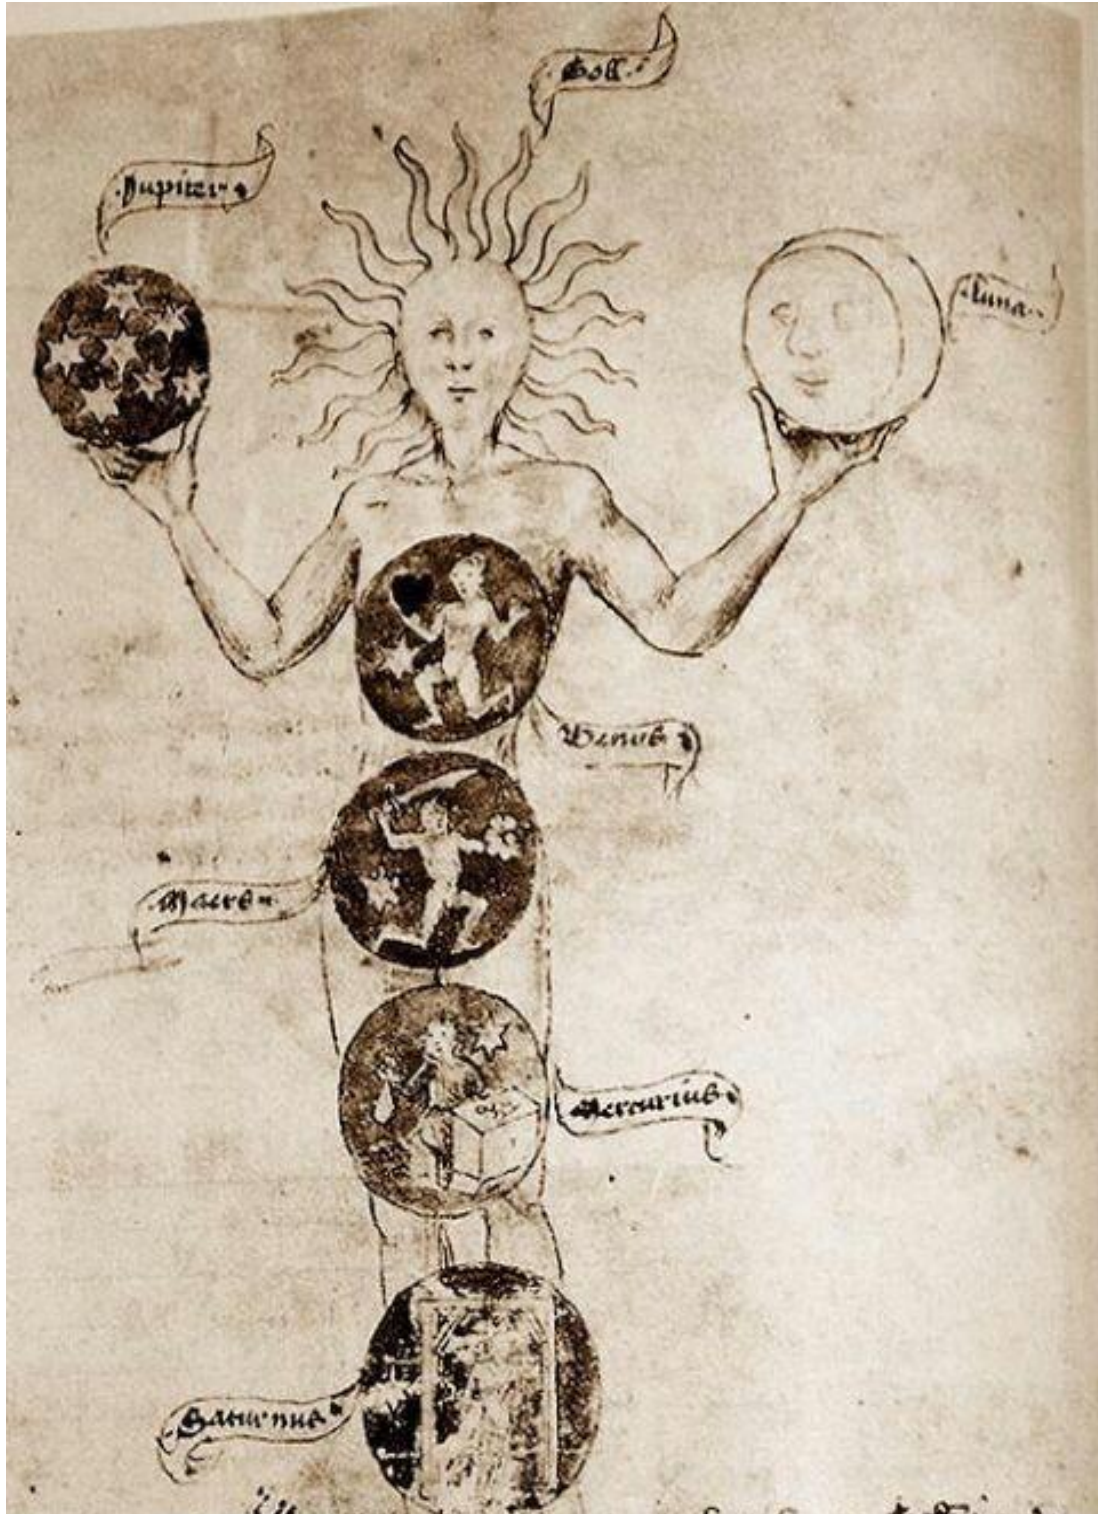 ·Soll·
·Jupiter·
·luna·
Venus
·Mars·
Mercurius
Saturnus